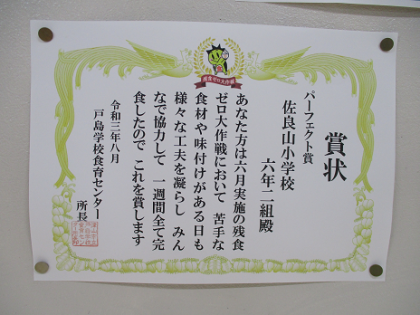 賞状
パーフェクト賞
佐良山小学校
六年二組殿
あなた方は六月実施の残食
ゼロ大作戦において 苦手な
食材や味付けがある日も
様々な工夫を凝らし みん
なで協力して 一週間全て完
食したので これを賞します
令和三年八月
戸島学校食育センター
所長